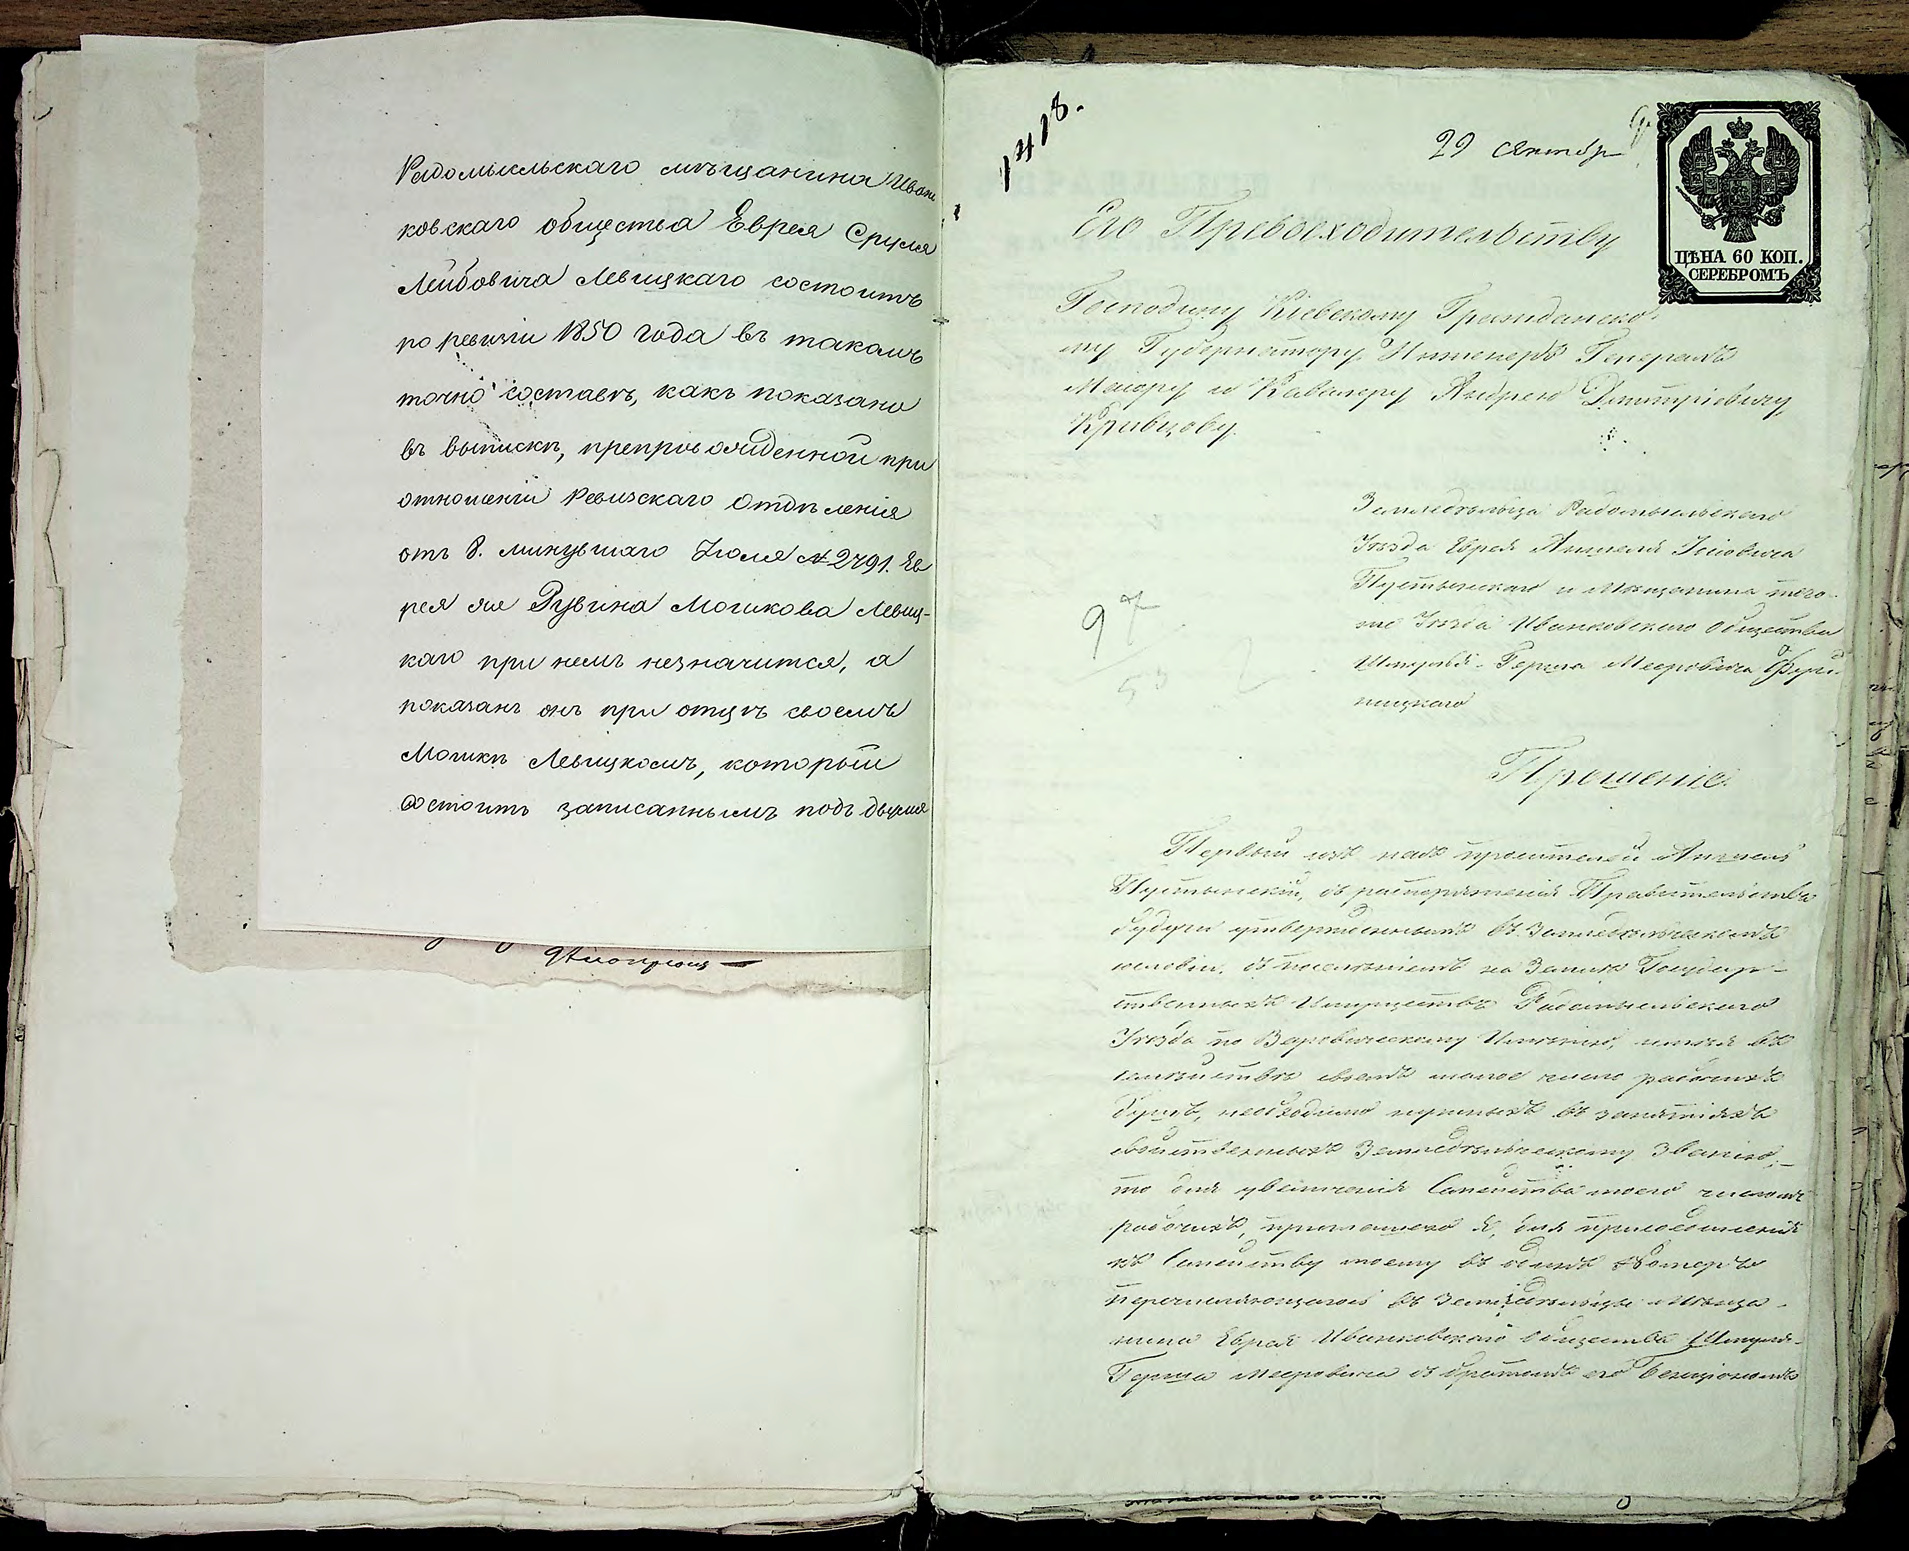 Радомысльскаго мѣщанина Иван
ковскаго общества Еврея Сруля
Лейбовича Левицкаго состоитъ
по ревизіи 1850 года въ такомъ
точно составѣ, какъ показано
въ выпискѣ, препровожденной при
отношеніи Ревизскаго Отдѣленія
отъ 8. минувшаго Іюля № 2791. Ев
рея же Рувина Мошкова Левиц-
каго при немъ незначится, а
показанъ онъ при отцѣ своемъ
Мошкѣ Левицкомъ, который
состоитъ записаннымъ подъ двумя
1418.
29 Сентябр
ЦѢНА 60 КОП.
СЕРЕБРОМЪ
Его Превосходительству
Господину Кіевскому Гражданско-
му Губернатору, Инженеръ Генералъ
Маіору и Кавалеру Андрею Дмитріевичу
Кривцову.
Земледѣльца Радомысльскаго
Уѣзда Еврея Аншеля Іосіовича
Пустынскаго и Мѣщанина того-
же Уѣзда Иванковскаго Общества
Шмуля-Герша Мееровича
ницкаго
97
50
Прошеніе.
Первый изъ насъ просителей Аншель
Пустынскій, съ распоряженія Правительства
будучи утвержденнымъ въ Земледѣльческомъ
сословіи, съ поселеніемъ на Земляхъ Государ-
ственныхъ Имуществъ Радомысльскаго
Уѣзда по Варовическому Имѣнію, имѣя въ
семѣйствѣ своемъ малое число рабочихъ
душъ, необходимо нужныхъ въ занятіяхъ
свойственныхъ Земледѣльческому Званію,-
то для увѣличенія Семѣйства моего числомъ
рабочихъ, пригласилъ я, для присоединенія
къ Семѣйству моему въ одинъ Номеръ
перечисляющагося въ Земледѣльцы Мѣща-
нина Еврея Иванковскаго Общества Шмуля-
Герша Мееровича съ братомъ его Бенціономъ